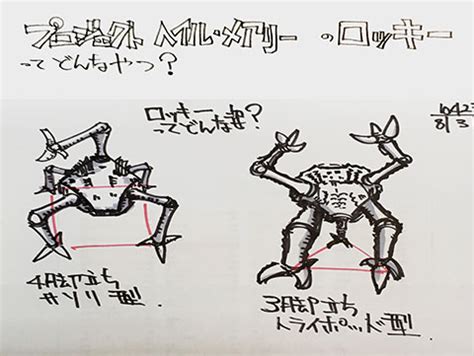 プロジェクト ヘイル・メアリー のロッキー
ってどんなやつ?
ロッキー
ってどんな姿?
4脚立ち
サソリ型
3脚立ち
トライポッド型